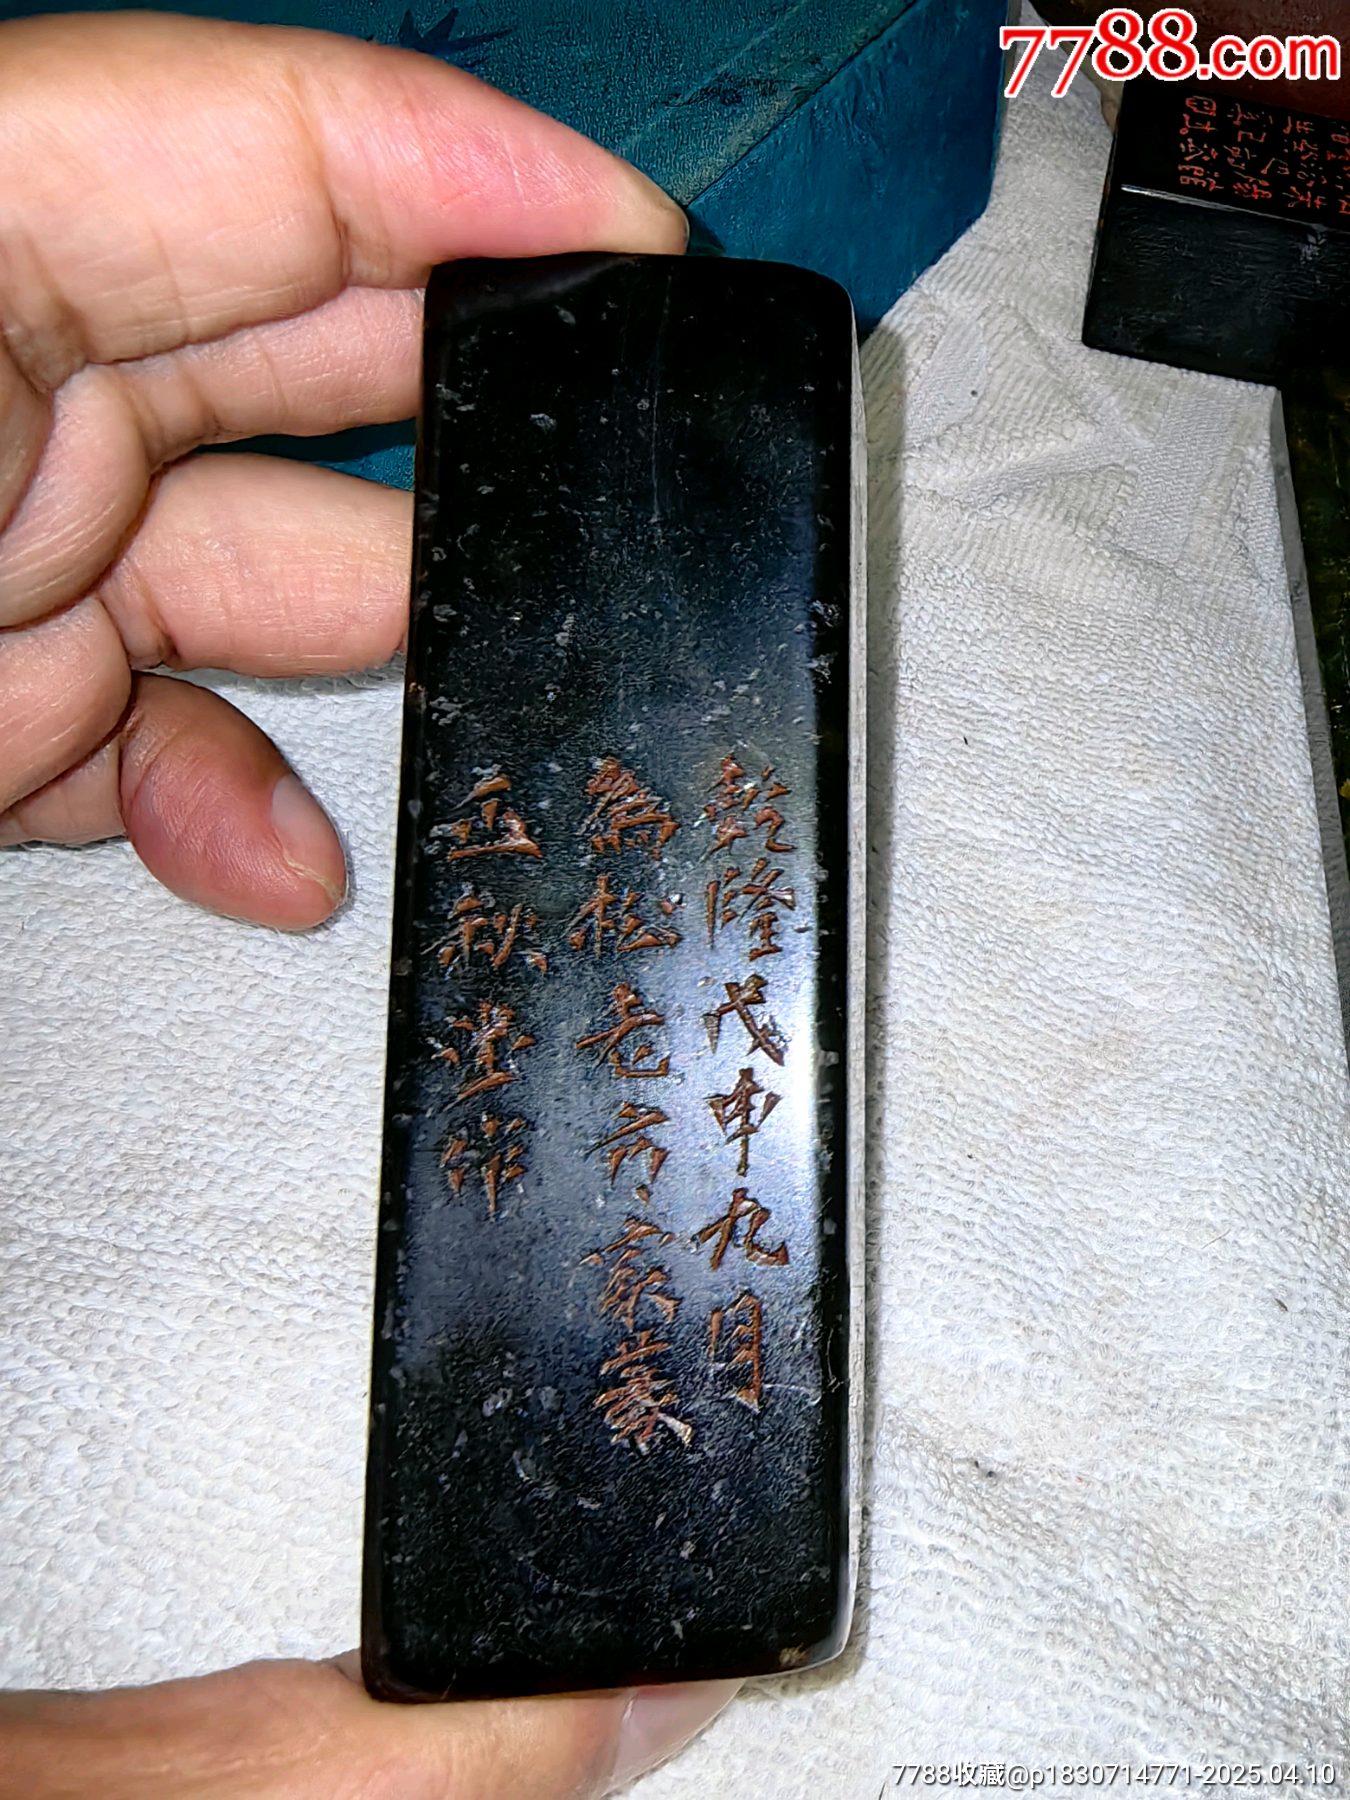 7788.com
乾隆戊申九月
為松老方家篆
立秋堂作
7788收藏@p1830714771-2025.04.10